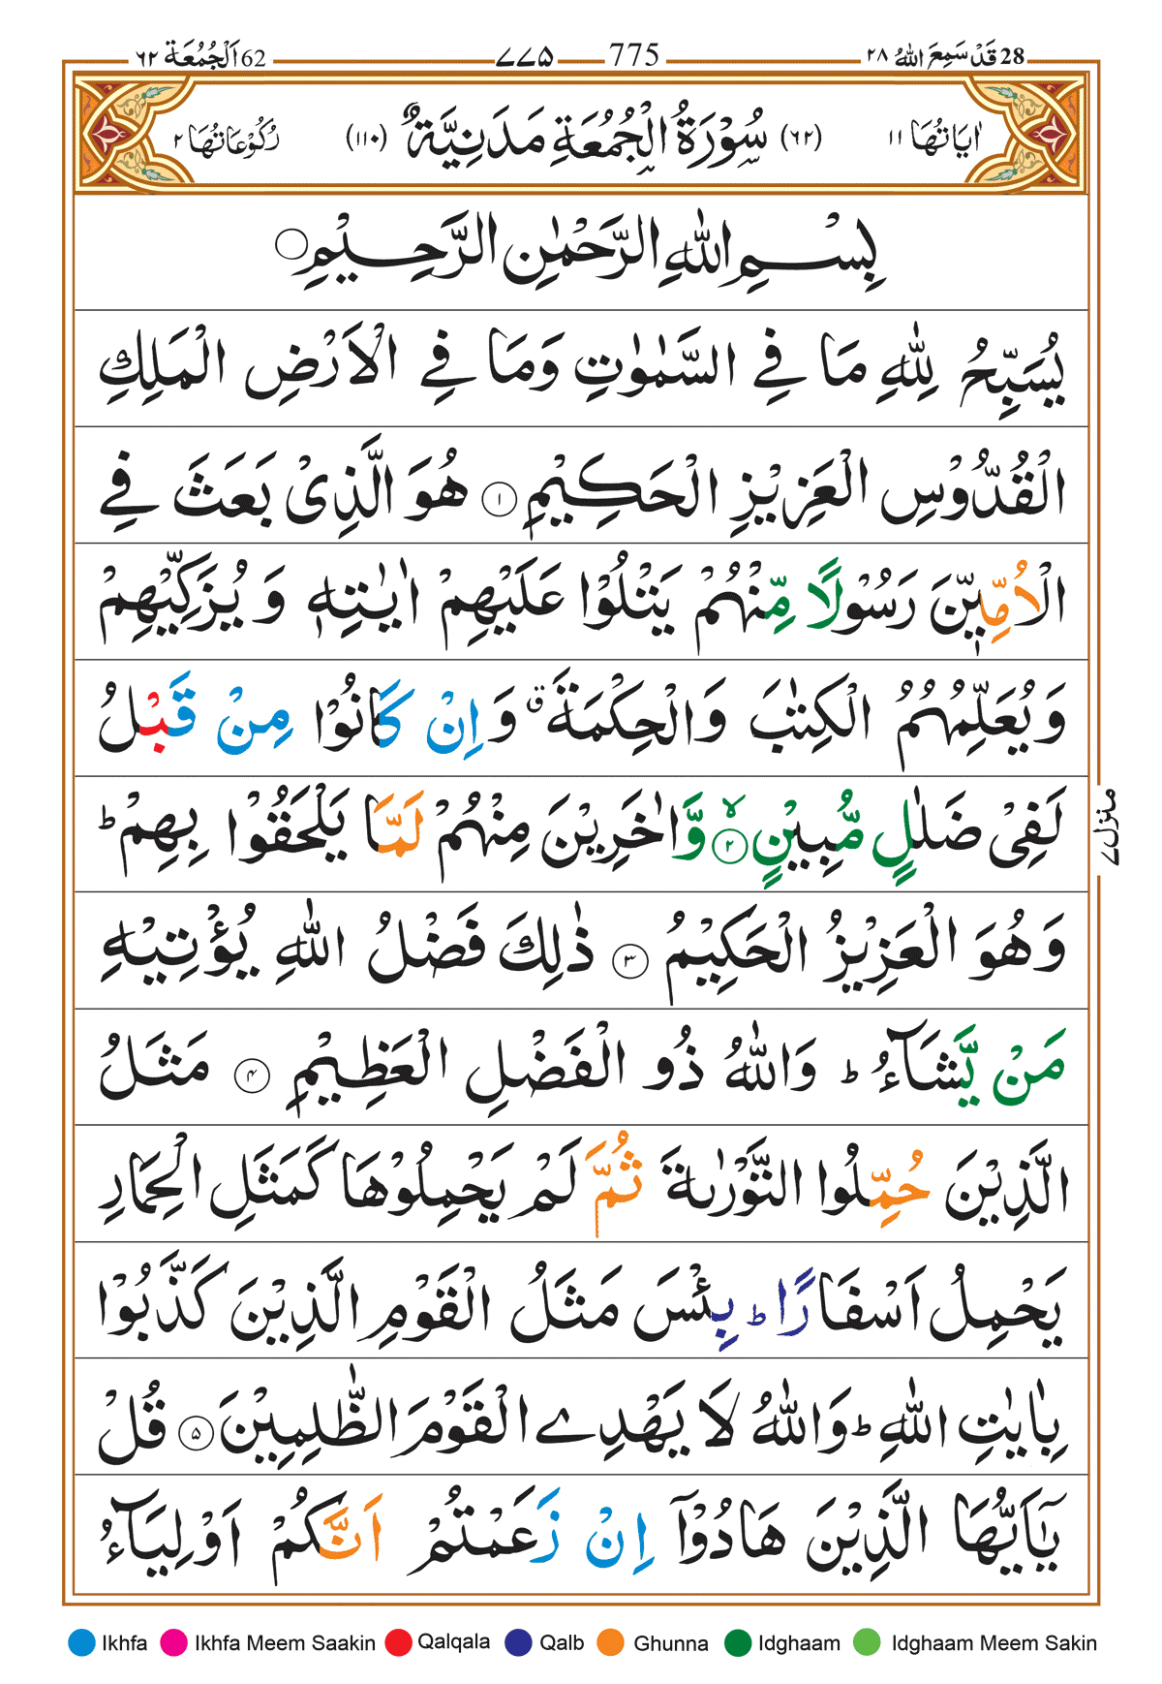 62 اَلْجُمُعَة ٦٢ ٧٧٥ 775 28 قَدْ سَمِعَ اللهُ ٢٨
اٰيَاتُهَا ١١ (٦٢) سُوْرَةُ الْجُمُعَةِ مَدَنِيَّةٌ (١١٠) رُكُوْعَاتُهَا ٢
بِسْمِ اللهِ الرَّحْمٰنِ الرَّحِيْمِ ۝
يُسَبِّحُ لِلّٰهِ مَا فِي السَّمٰوٰتِ وَمَا فِي الْاَرْضِ الْمَلِكِ
الْقُدُّوْسِ الْعَزِيْزِ الْحَكِيْمِ ١ هُوَ الَّذِيْ بَعَثَ فِي
الْاُمِّيّٖنَ رَسُوْلًا مِّنْهُمْ يَتْلُوْا عَلَيْهِمْ اٰيٰتِهٖ وَيُزَكِّيْهِمْ
وَيُعَلِّمُهُمُ الْكِتٰبَ وَالْحِكْمَةَ ۗ وَاِنْ كَانُوْا مِنْ قَبْلُ
لَفِيْ ضَلٰلٍ مُّبِيْنٍ ٢ وَّاٰخَرِيْنَ مِنْهُمْ لَمَّا يَلْحَقُوْا بِهِمْ ؕ
وَهُوَ الْعَزِيْزُ الْحَكِيْمُ ٣ ذٰلِكَ فَضْلُ اللهِ يُؤْتِيْهِ
مَنْ يَّشَآءُ ؕ وَاللهُ ذُو الْفَضْلِ الْعَظِيْمِ ٤ مَثَلُ
الَّذِيْنَ حُمِّلُوا التَّوْرٰىةَ ثُمَّ لَمْ يَحْمِلُوْهَا كَمَثَلِ الْحِمَارِ
يَحْمِلُ اَسْفَارًا ؕ بِئْسَ مَثَلُ الْقَوْمِ الَّذِيْنَ كَذَّبُوْا
بِاٰيٰتِ اللهِ ؕ وَاللهُ لَا يَهْدِى الْقَوْمَ الظّٰلِمِيْنَ ٥ قُلْ
يٰٓاَيُّهَا الَّذِيْنَ هَادُوْٓا اِنْ زَعَمْتُمْ اَنَّكُمْ اَوْلِيَآءُ
منزل ٧
Ikhfa Ikhfa Meem Saakin Qalqala Qalb Ghunna Idghaam Idghaam Meem Sakin